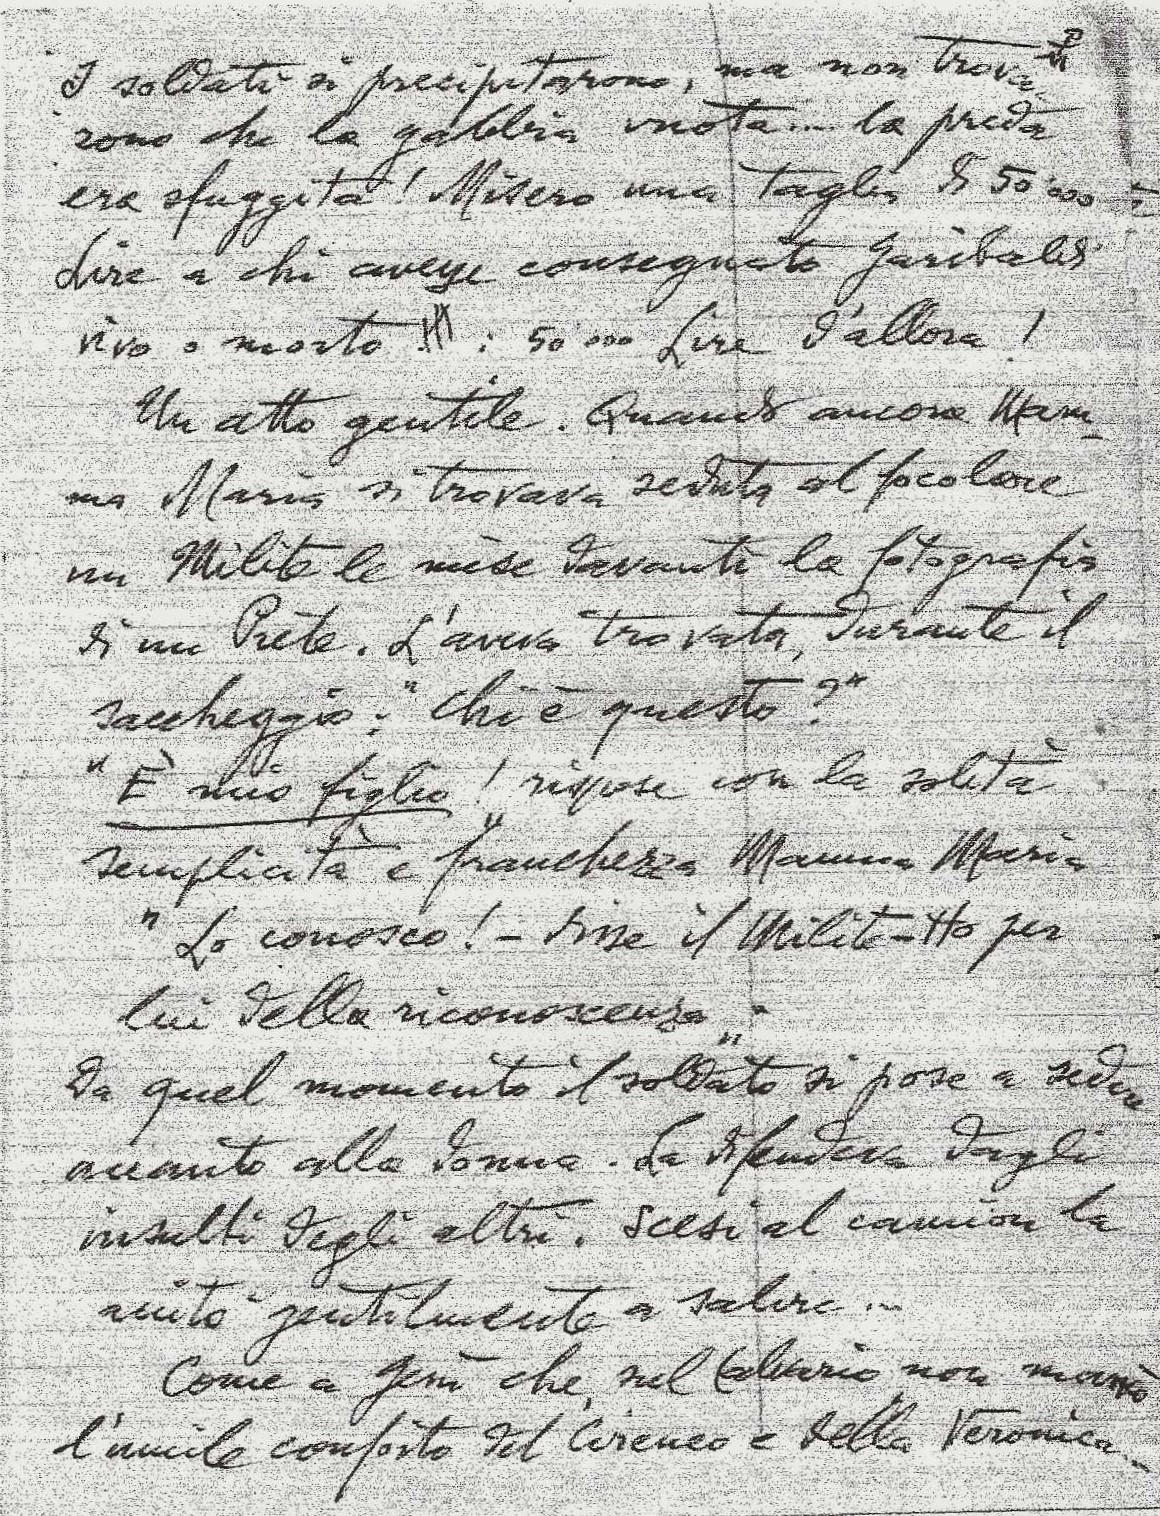 I soldati si precipitarono, ma non trova
rono che la gabbia vuota... la preda
era sfuggita! Misero una taglia di 50'000
Lire a chi avesse consegnato Garibaldi
vivo o morto !!! : 50'000 Lire d'allora!
Un atto gentile. Quando ancora Mam_
ma Maria si trovava seduta al focolare
un Milite le mise davanti la fotografia
di un Prete. L'aveva trovata, durante il
saccheggio: "Chi è questo?"
"È mio figlio!" rispose con la solita
semplicità e franchezza Mamma Maria
"Lo conosco! - disse il Milite - Ho per
lui della riconoscenza".
Da quel momento il soldato si pose a sedere
accanto alla donna. La difendeva dagli
insulti degli altri. Scesi al camion la
aiutò gentilmente a salire...
Come a Gesù che, nel Calvario non mancò
l'umile conforto del Cireneo e della Veronica...